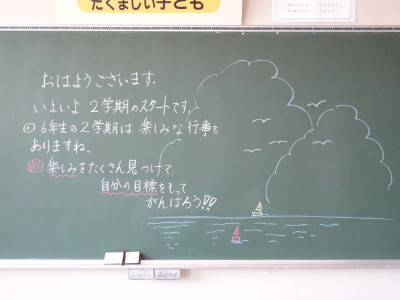 たくましい子ども
おはようございます。
いよいよ 2学期のスタートです。
6年生の2学期は 楽しみな行事も
ありますね。
楽しみをたくさん見つけて
自分の目標をもって
がんばろう!!